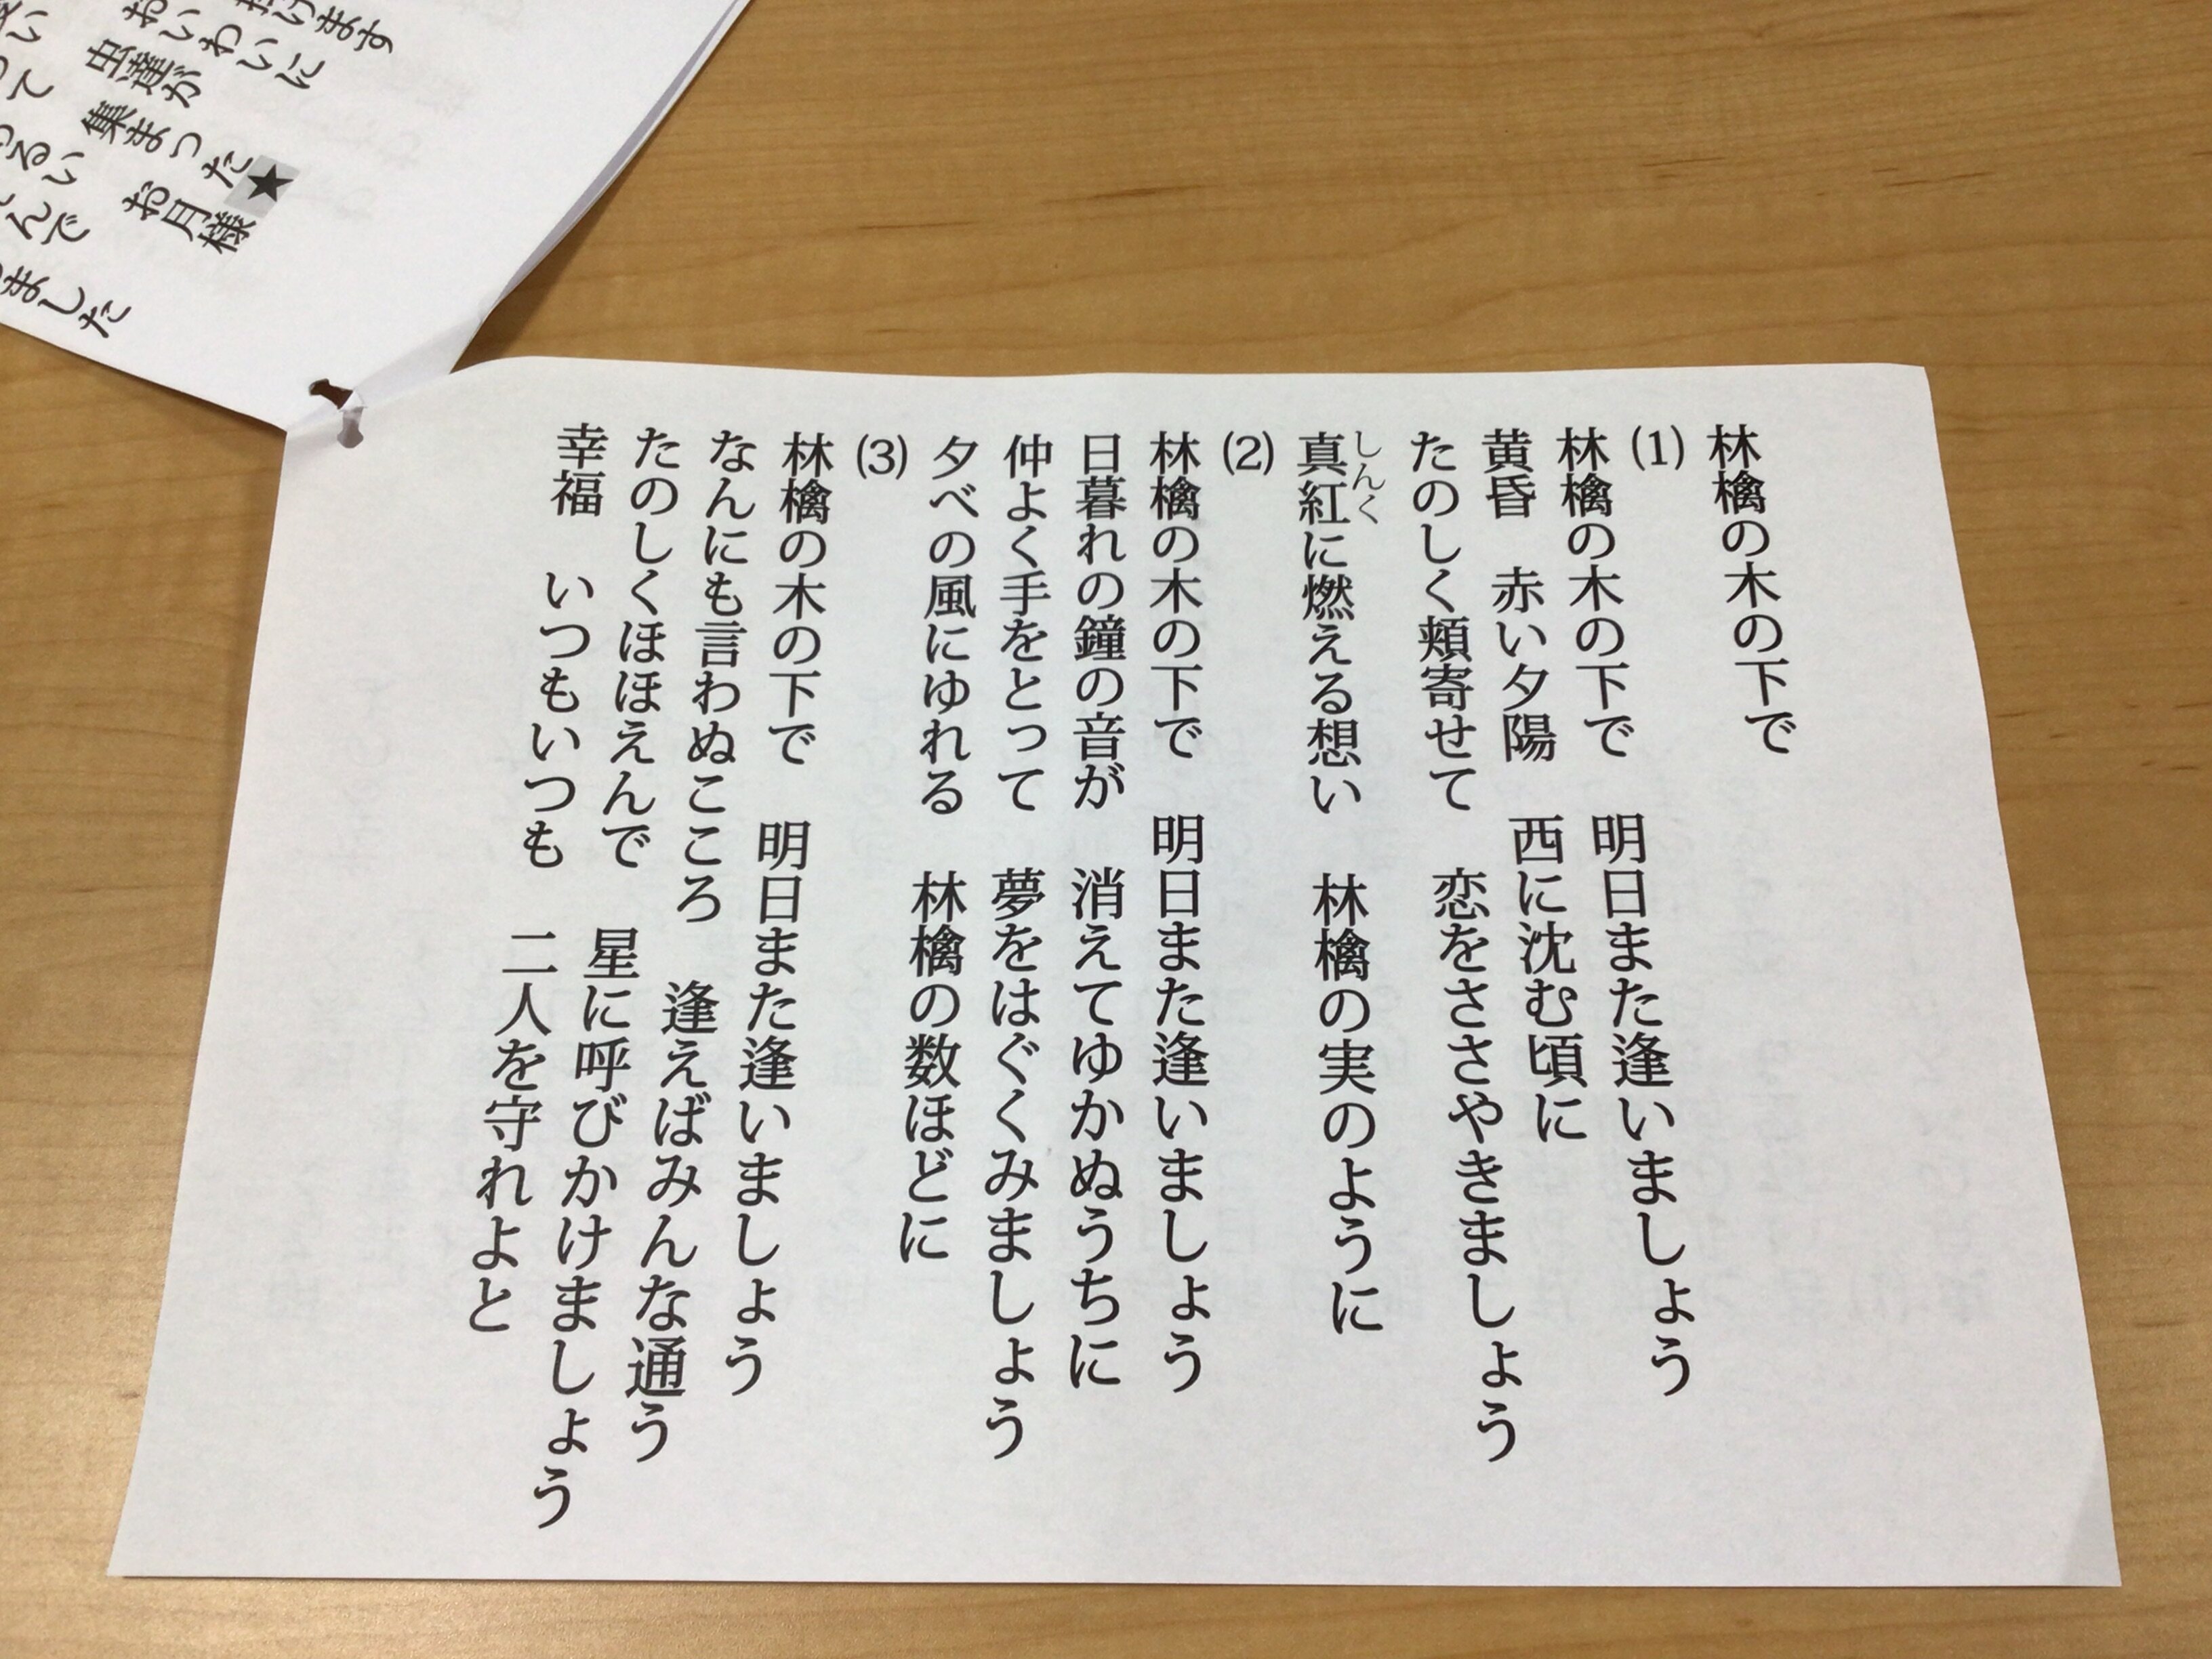 林檎の木の下で
(1)
林檎の木の下で　明日また逢いましょう
黄昏　赤い夕陽　西に沈む頃に
たのしく頬寄せて　恋をささやきましょう
真紅に燃える想い　林檎の実のように
しんく
(2)
林檎の木の下で　明日また逢いましょう
日暮れの鐘の音が　消えてゆかぬうちに
仲よく手をとって　夢をはぐくみましょう
夕べの風にゆれる　林檎の数ほどに
(3)
林檎の木の下で　明日また逢いましょう
なんにも言わぬこころ　逢えばみんな通う
たのしくほほえんで　星に呼びかけましょう
幸福　いつもいつも　二人を守れよと
けます
おいわいに
虫達が　集まった★
お月様
るい
んで
ました